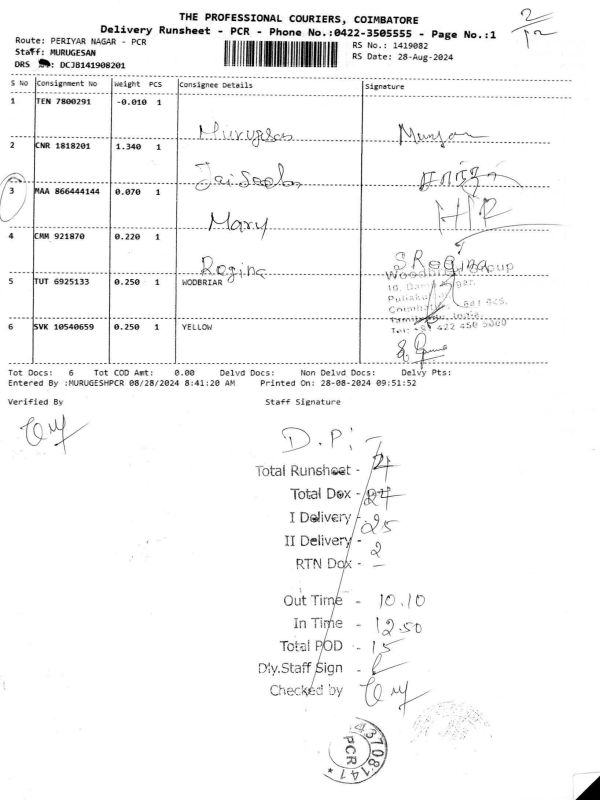 THE PROFESSIONAL COURIERS, COIMBATORE
2/12
Delivery Runsheet - PCR - Phone No.:0422-3505555 - Page No.:1
Route: PERIYAR NAGAR - PCR
RS No.: 1419082
Staff: MURUGESAN
RS Date: 28-Aug-2024
DRS : DCJB141908201
S No Consignment No Weight PCS Consignee Details Signature
1 TEN 7800291 -0.010 1
Murugesan
2 CNR 1818201 1.340 1
3 MAA 866444144 0.070 1
Mary
4 CMM 921870 0.220 1
Regina S Regina
5 TUT 6925133 0.250 1 WODBRIAR
Group
Tel: +91 422 450 5000
6 SVK 10540659 0.250 1 YELLOW
Tot Docs: 6 Tot COD Amt: 0.00 Delvd Docs: Non Delvd Docs: Delvy Pts:
Entered By :MURUGESHPCR 08/28/2024 8:41:20 AM Printed On: 28-08-2024 09:51:52
Verified By Staff Signature
D.P: -
Total Runsheet -
Total Dox - 27
I Delivery - 25
II Delivery - 2
RTN Dox - -
Out Time - 10.10
In Time - 12.50
Total POD - 15
Dly.Staff Sign -
Checked by
43708141
PCR